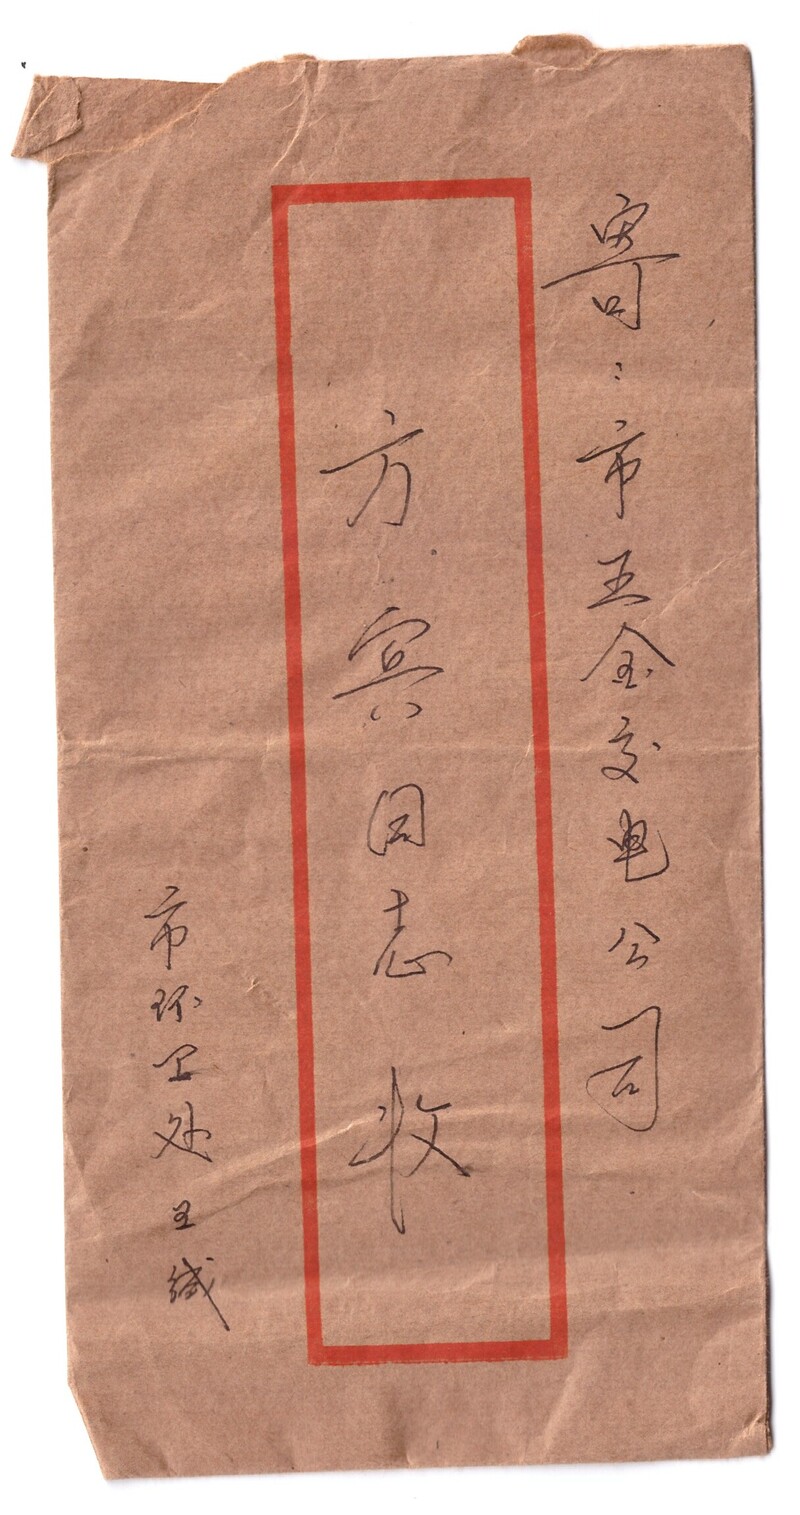 寄：市五金交电公司
方宾同志 收
市环卫处 王缄